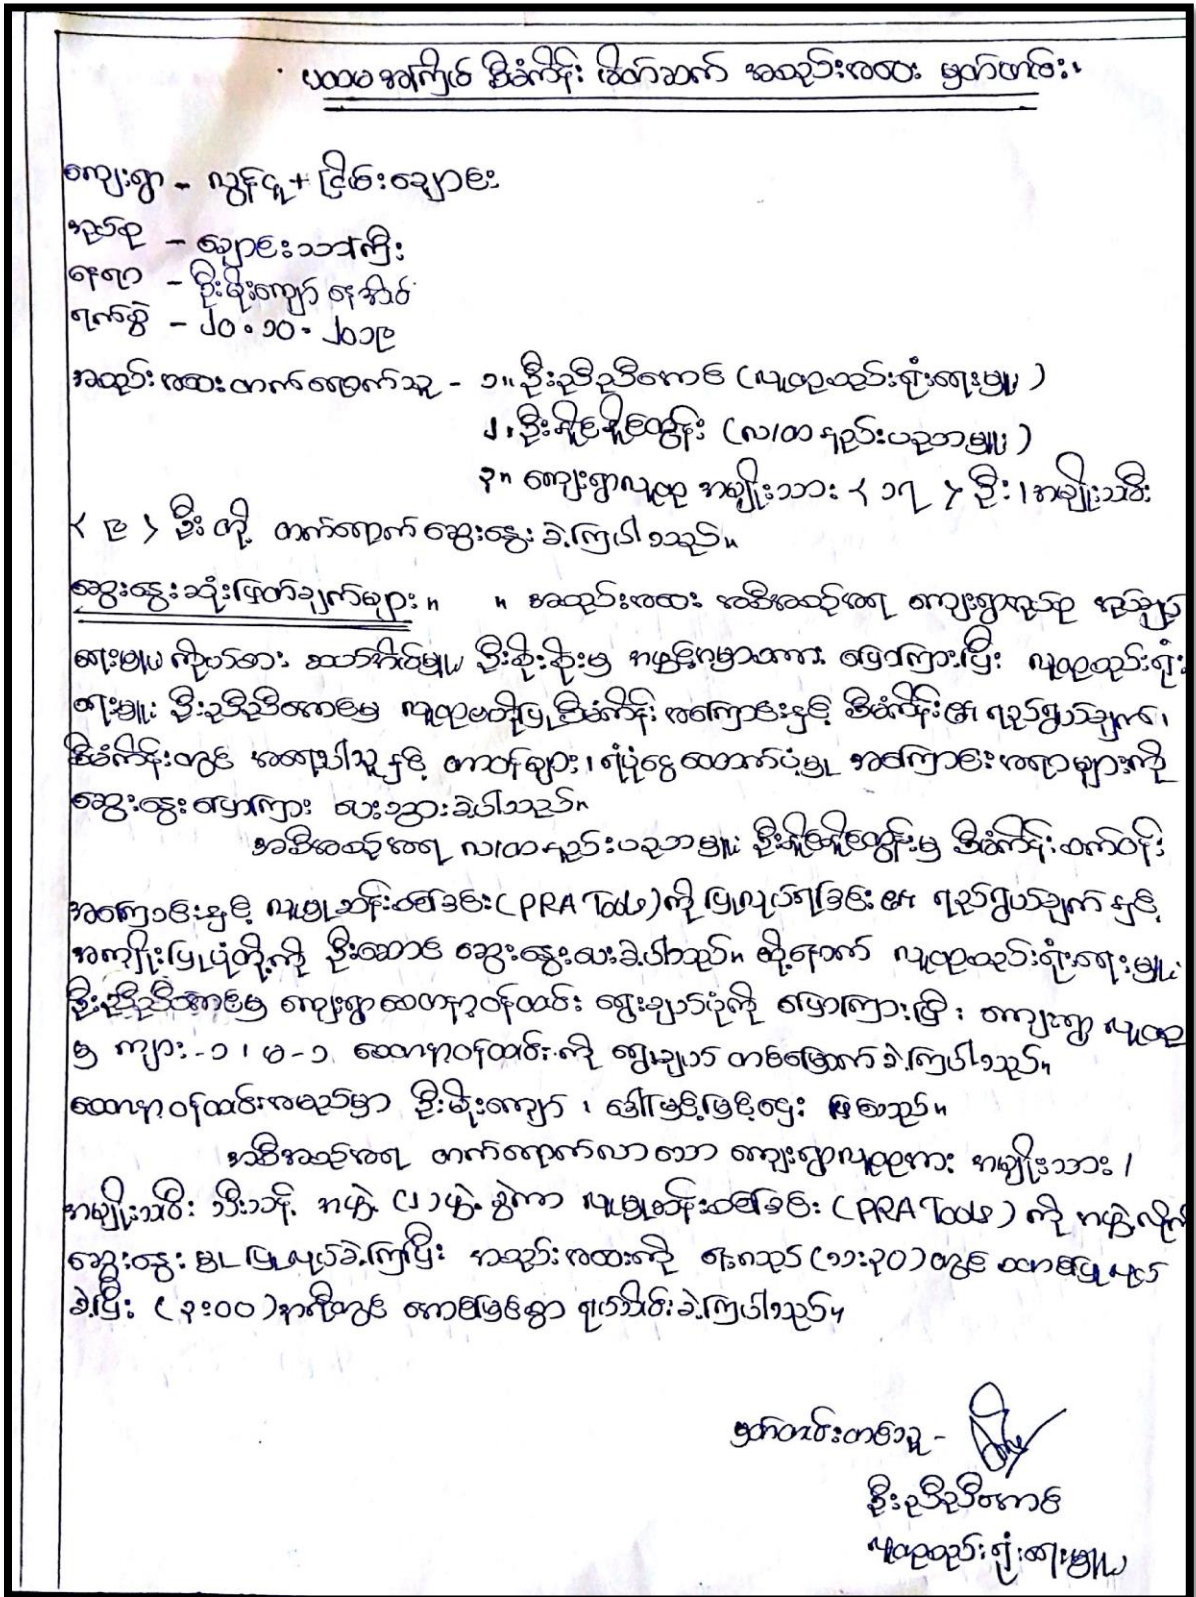 ပထမအကြိမ် စီမံကိန်း မိတ်ဆက် အစည်းအဝေး မှတ်တမ်း။
ကျေးရွာ - လွန်ငူ + ငြိမ်းချောင်း
အုပ်စု - ချောင်းသာကြီး
နေရာ - ဦးမိုးကျော် နေအိမ်
ရက်စွဲ - ၂၀.၁၀.၂၀၁၉
အစည်းအဝေးတက်ရောက်သူ - ၁။ ဦးညီညီအောင် (လူထုစည်းရုံးရေးမှူး)
၂။ ဦးနိုင်နိုင်ထွန်း (လ/ထ နည်းပညာမှူး)
၃။ ကျေးရွာလူထု အမျိုးသား < ၁၇ > ဦး၊ အမျိုးသမီး
< ၉ > ဦး တို့ တက်ရောက် ဆွေးနွေး ခဲ့ကြပါသည်။
ဆွေးနွေးဆုံးဖြတ်ချက်များ။ ။ အစည်းအဝေး အစီအစဉ်အရ ကျေးရွာအုပ်စု အုပ်ချုပ်
ရေးမှူး ကိုယ်စား ဆယ်အိမ်မှူး ဦးစိုးစိုးမှ အဖွင့်အမှာစကား ပြောကြားပြီး လူထုစည်းရုံး
ရေးမှူး ဦးညီညီအောင်မှ လူထုဗဟိုပြုစီမံကိန်း အကြောင်းနှင့် စီမံကိန်း၏ ရည်ရွယ်ချက်၊
စီမံကိန်းတွင် အရေးပါသူနှင့် တာဝန်များ၊ ရံပုံငွေ ထောက်ပံ့မှု အကြောင်းအရာများကို
ဆွေးနွေးပြောကြား ပေးသွားခဲ့ပါသည်။
အစီအစဉ်အရ လ/ထ နည်းပညာမှူး ဦးနိုင်နိုင်ထွန်းမှ စီမံကိန်း စက်ဝန်း
အကြောင်းနှင့် လူမှုဆန်းစစ်ခြင်း (PRA Tools) ကို ပြုလုပ်ရခြင်း၏ ရည်ရွယ်ချက် နှင့်
အကျိုးပြုပုံတို့ကို ဦးဆောင် ဆွေးနွေးပေးခဲ့ပါသည်။ ထို့နောက် လူထုစည်းရုံးရေးမှူး
ဦးညီညီအောင်မှ ကျေးရွာစေတနာ့ဝန်ထမ်း ရွေးချယ်ပုံကို ပြောကြားပြီး ကျေးရွာ လူထု
မှ ကျား-၁၊ မ-၁ စေတနာ့ဝန်ထမ်း ကို ရွေးချယ် တင်မြှောက် ခဲ့ကြပါသည်။
စေတနာ့ဝန်ထမ်းအမည်မှာ ဦးမိုးကျော် ၊ ဒေါ်မြင့်မြင့်ဌေး ဖြစ်သည်။
အစီအစဉ်အရ တက်ရောက်လာသော ကျေးရွာလူထုအား အမျိုးသား ၊
အမျိုးသမီး သီးသန့် အဖွဲ့ (၂) ဖွဲ့ ခွဲကာ လူမှုဆန်းစစ်ခြင်း (PRA Tools) ကို အဖွဲ့လိုက်
ဆွေးနွေး ပြုလုပ်ခဲ့ကြပြီး အစည်းအဝေးကို နေ့လည် (၁၁:၃၀) တွင် စတင်ပြုလုပ်
ခဲ့ပြီး (၃:၀၀) နာရီတွင် အောင်မြင်စွာ ရုပ်သိမ်းခဲ့ကြပါသည်။
မှတ်တမ်းတင်သူ -
ဦးညီညီအောင်
လူထုစည်းရုံးရေးမှူး